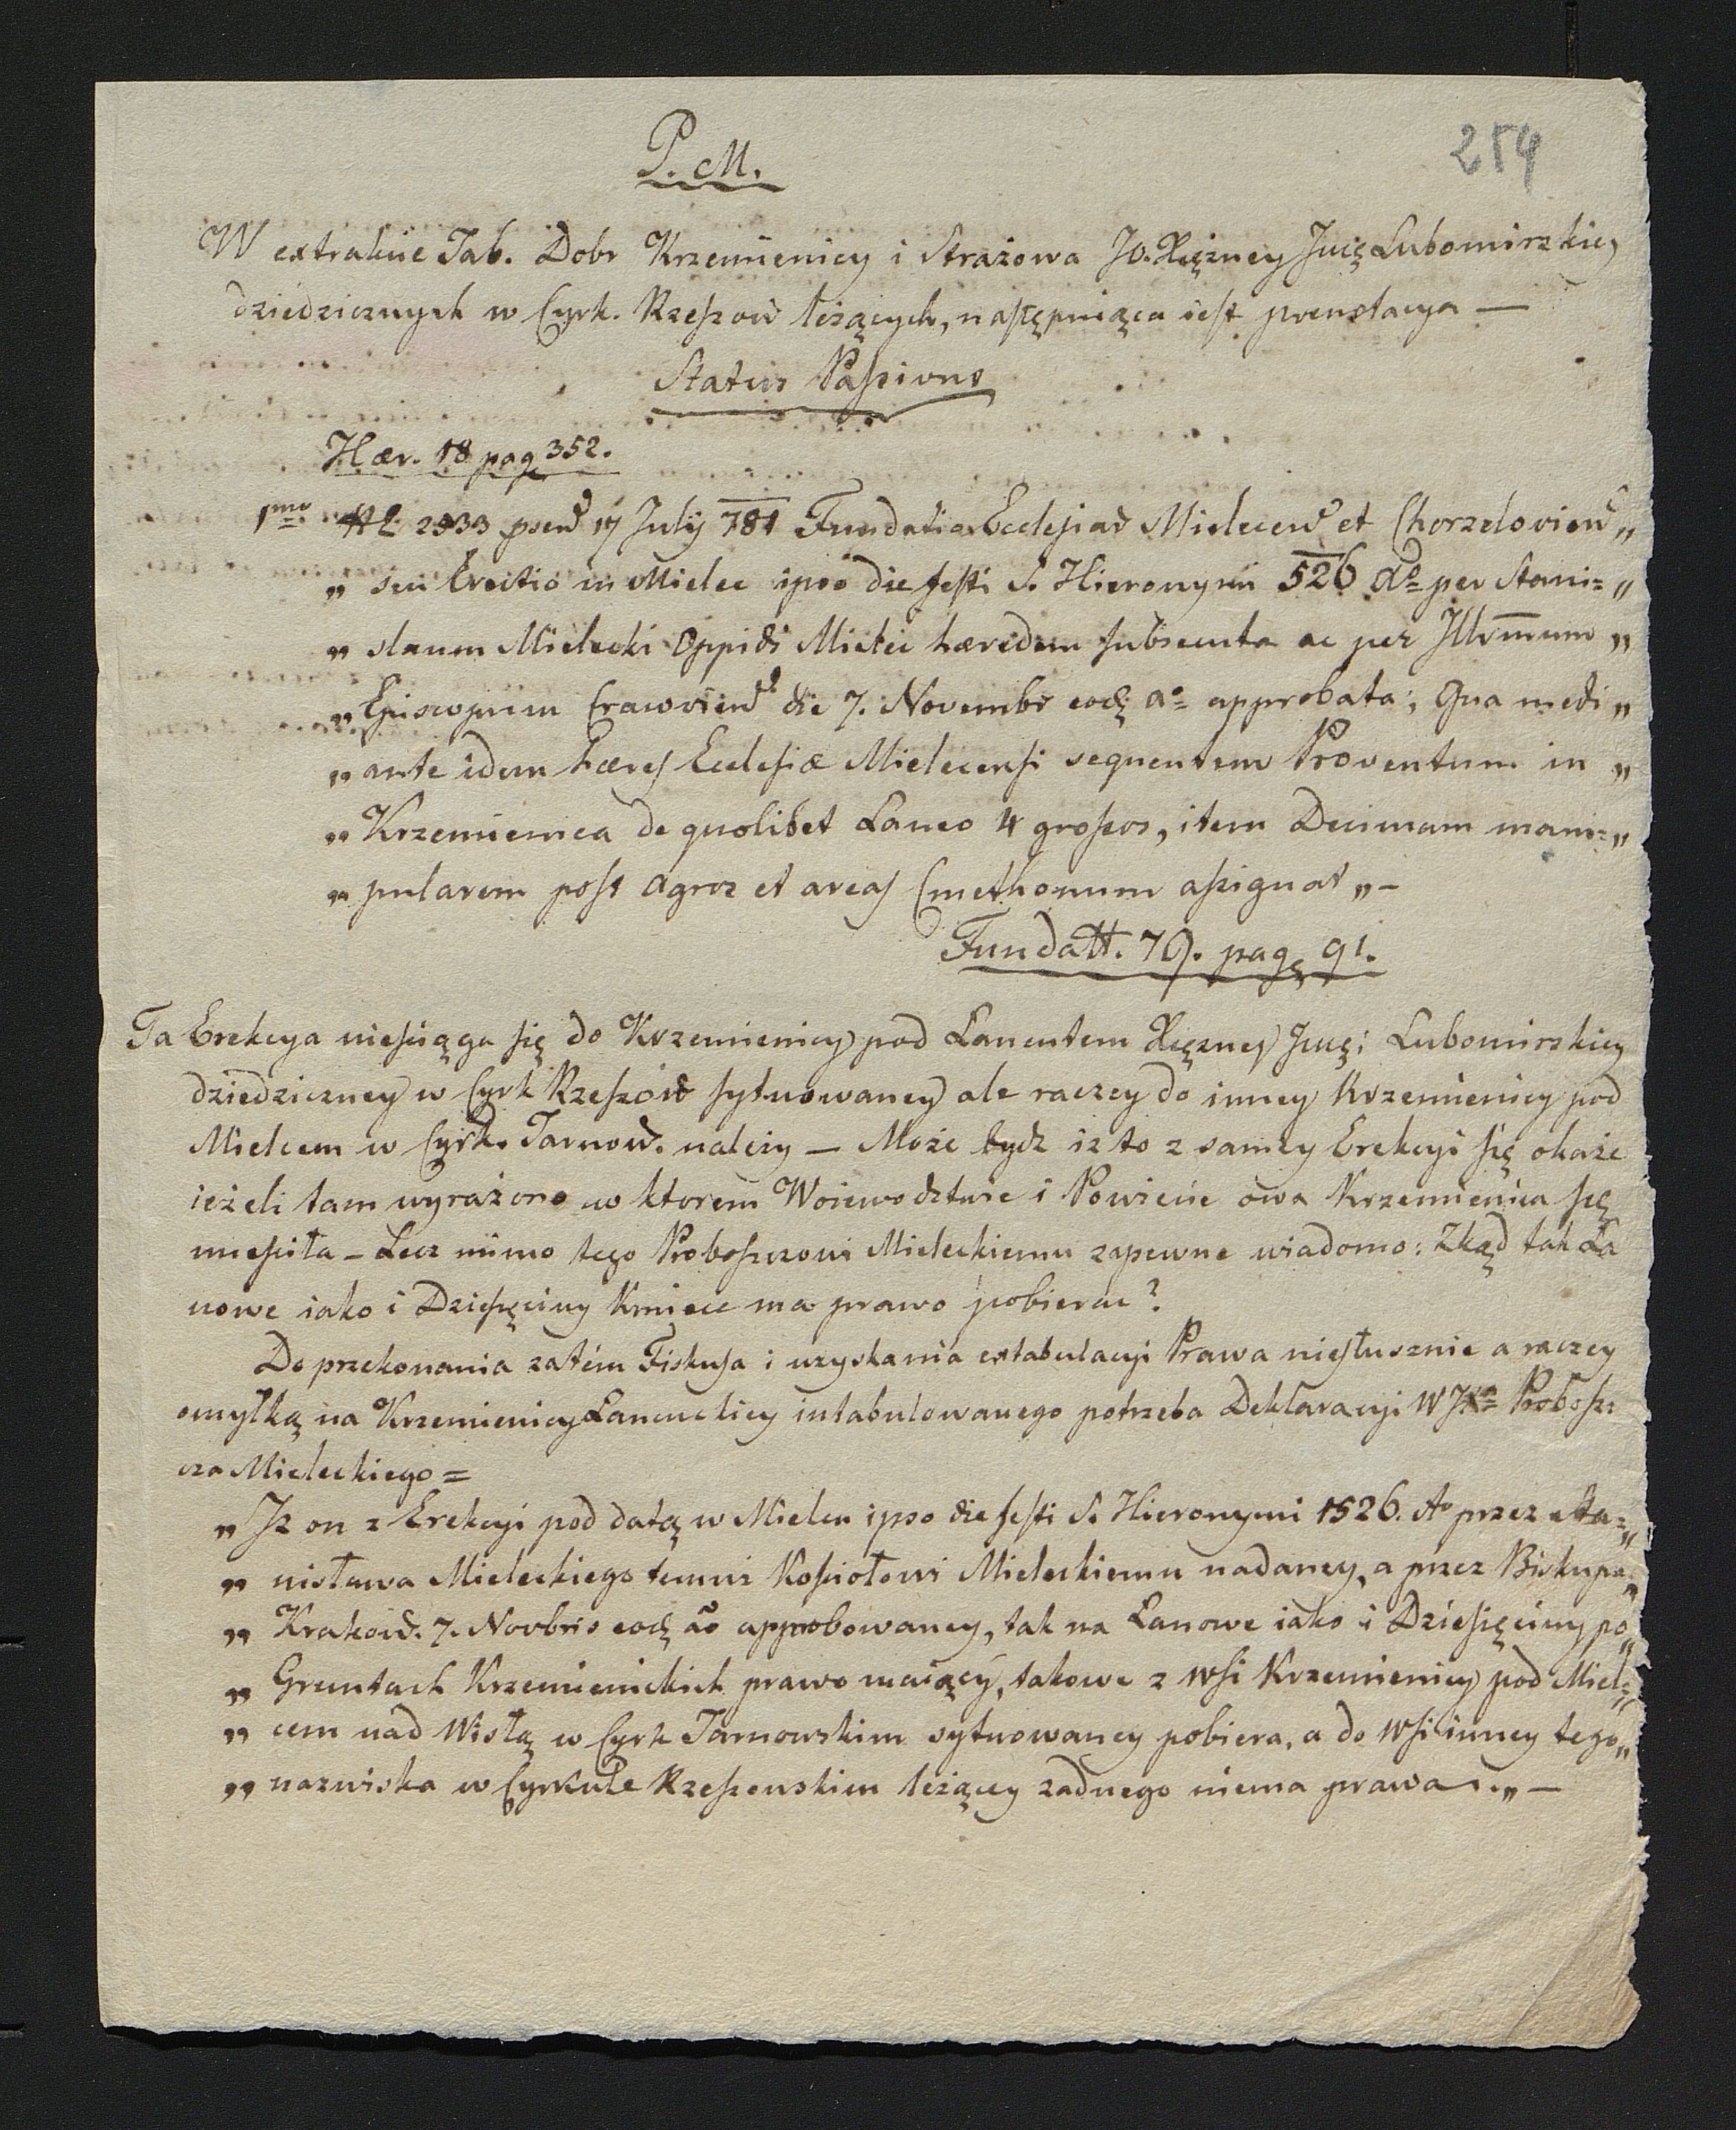 P. M.
254
W extrakcie Tab. Dobr Krzemienicy i Strażowa Jo. Xiężney Jmcię Lubomirzkiey
dziedzicznych w Cyrk. Rzeszow leżących, następuiąca iest prenotacya —
Status Passivus
Hær. 18 pag 352.
1mo Al 2933 præs 17 July 781 Fundatio Ecclesiar Mielecen et Chorzelovien „
„ seu Erectio in Mielec ipso die festi S. Hieronymi 526 Ao per Stani= „
„ slaum Mielecki Oppidi Mielec hæredem subsecuta ac per Illrmum „
„ Episcopum Cracovien die 7. Novembr eod ao approbata; Qua medi „
„ ante idem hæres Ecclesiæ Mielecensi sequentem Proventum in „
„ Krzemienica de quolibet Laneo 4 grossos, item Decimam mani= „
„ pularem post agros et areas Cmethonum assignat „ —
Fundatt. 79. pag. 91.
Ta Erekcya niesciąga się do Krzemienicy pod Lancutem Xiężney Jmci Lubomirskiey
dziedziczney w Cyrk Rzeszow sytuowaney ale raczey do inney Krzemienicy pod
Mielcem w Cyrk. Tarnow. należy — Może bydz iz to z samey Erekcyi się okaże
ieżeli tam wyrażono w ktorem Woiewodztwie i Powiecie owa Krzemienica się
miesciła — Lecz mimo tego Proboszczowi Mieleckiemu zapewne wiadomo: Zkąd tak La
nowe iako i Dziesięciny Kmiece ma prawo pobierac?
Do przekonania zatém Fiskusa i uzyskania extabulacyi Prawa niesłusznie a raczey
omyłką na Krzemienicy Lancuckiey intabulowanego potrzeba Deklaracyi WJXa Probosz=
cza Mieleckiego =
„ Iz on z Erekcyi pod datą w Mielcu ipso die festi S. Hieronymi 1526. Ao przez Sta= „
„ nisława Mieleckiego temuz Kosciołowi Mieleckiemu nadaney, a przez Biskupa „
„ Krakow. 7. Novbris eod ao approbowaney, tak na Lanowe iako i Dziesięciny po „
„ Gruntach Krzemienickich prawo maiący, takowe z Wsi Krzemienicy pod Miel= „
„ cem nad Wisłą w Cyrk Tarnowskim sytuowaney pobiera, a do Wsi inney tego „
„ nazwiska w Cyrkule Rzeszowskim leżącey zadnego niema prawa. „ —